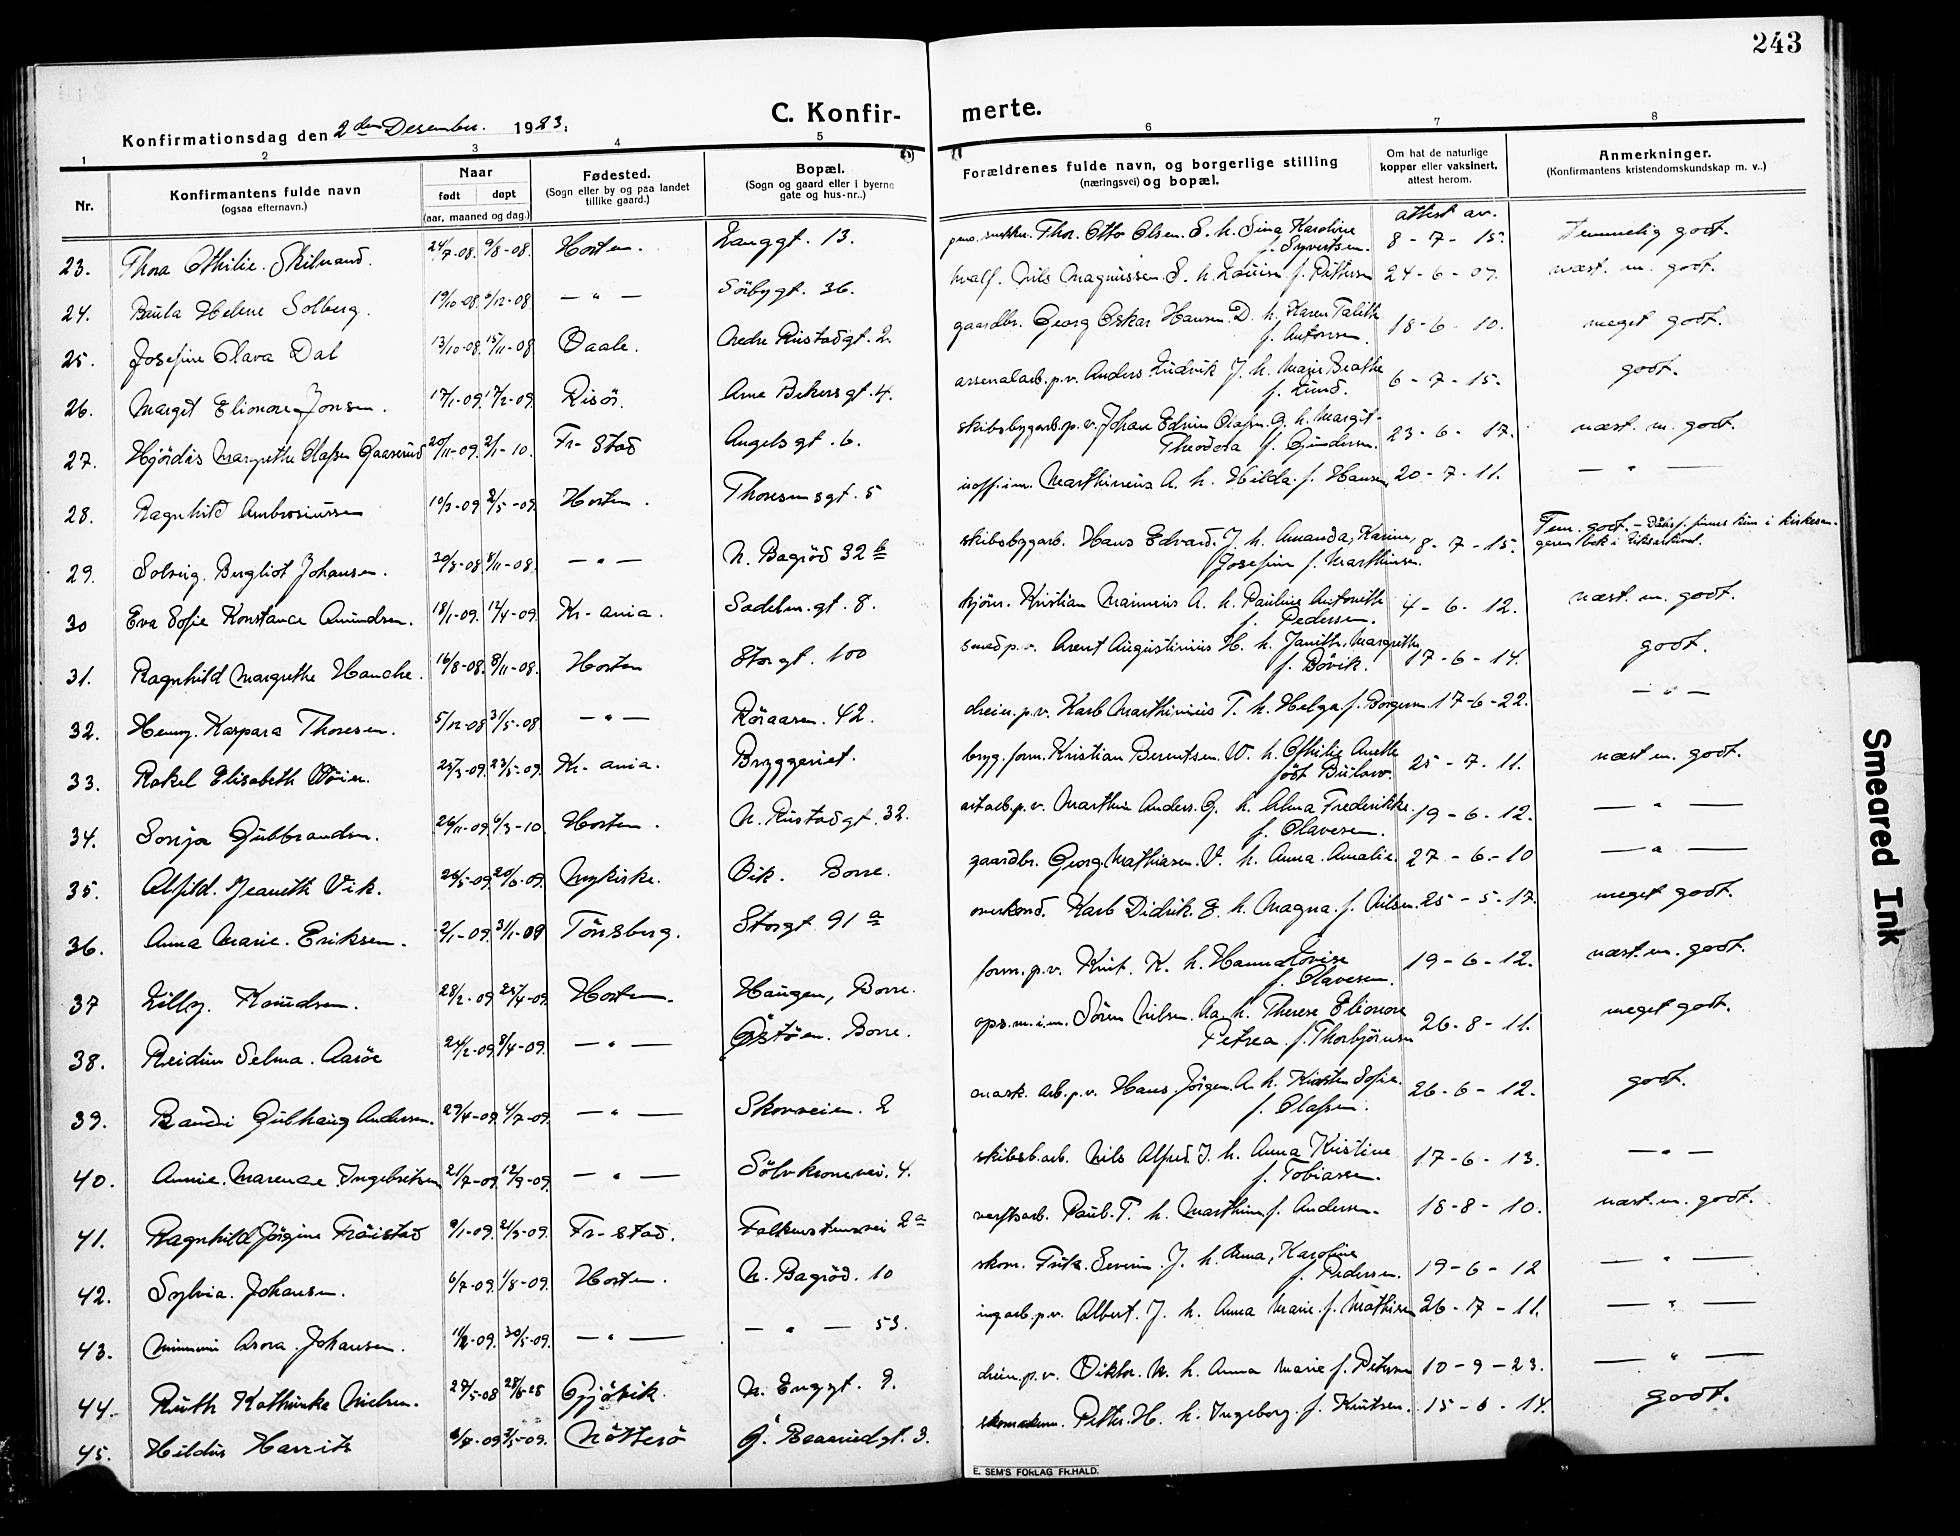 243
Konfirmationsdag den 2den Desember. 1923.
C. Konfir-
merte.
1 2 3 4 5 6 7 8
Nr.
Konfirmantens fulde navn
(ogsaa efternavn.)
Naar
født døpt
(aar, maaned og dag.)
Fødested.
(Sogn eller by og paa landet
tillike gaard.)
Bopæl.
(Sogn og gaard eller i byerne
gate og hus-nr..)
Forældrenes fulde navn, og borgerlige stilling
(næringsvei) og bopæl.
Om hat de naturlige
kopper eller vaksinert,
attest herom.
Anmerkninger.
(Konfirmantens kristendomskundskap m. v..)
attest av.
23. Thora Othilie. 24/7-08. 9/8-08 Horten. Langgt. 13. Thor. Otto Olsen. S. h. Sina Karoline f. Syvertsen. 8-7-15. temmelig godt.
24. Paula Helene Solberg. 19/10-08. /12-08 — " — Sörbygt. 36. hvalf. Nils Magnussen. S. h. Louise f. Pettersen 24-6-09. næst. m. godt.
25. Josefine Olava Dal 13/10-08. 15/11-08 Vaale. Nedre Rustadgt. 2. gaardbr. Georg Oskar Hansen. D. h. Karen Talithe f. Antonsen. 18-6-10. meget godt.
26. Margit Elionore Jonsen. 17/1-09. 17/2-09. Risör. Arne Bekersgt. 4. arsenalarb. p.v. Anders Ludvik J. h. Marie Beathe f. Lund. 6-7-15. godt.
27. Hjördis Margrethe Olafsen Gaaserud 20/11-09. 2/1-10. Fr-stad Angelsgt. 6. skibsbygarb. p.v. Johan Edvin Olafsen G. h. Margit Theodora f. Gundersen. 23-6-17. næst. m. godt.
28. Ragnhild Ambrosiussen 10/3-09 2/5-09. Horten. Thoresensgt. 5 Marthinius A. h. Hilda f. Hansen. 20-7-11. — " —
29. Solveig. Bergliot Johansen. 8/11-08. — " — N. Bagröd 32 b skibsbygarb. Hans Edvard. J. h. Amanda, Karine, Josefine f. Marthinsen. 8-7-15. Tem. godt. - Daabs.
30 Eva Sofie Konstance Amundsen. 18/1-09. 12/4-09. Kr-ania. Sadelm.gt. 8. Kristian A. h. Pauline Antonette f. Pedersen. 4-6-12. næst. m. godt.
31. Ragnhild Margrethe Hanche. 16/8-08. 8/11-08. Horten Storgt. 100 smed p.v. Arent Augustinius H. h. Janith, Margrethe f. Bövik. 17-6-14. godt.
32. Henny. Kaspara Thoresen. 5/12-08 31/5-08. — " — Röraasen. 42. dreier. p.v. Karl Marthinius T. h. Helga f. Borgersen 17-6-22. — " —
33. Rakel Elisabeth 25/3-09. 23/5-09. Kr-ania. Bryggeriet. bryg. form. Kristian Berentsen. W. h. Othilie Anette född Bülow. 25-7-11. næst m. godt.
34. Sonja Gulbrandsen. 26/11-09. 6/3-10. Horten. N. Rustadgt. 32. Marthin Anders. G. h. Alma Frederikke. f. Olavesen. 19-6-12. — " —
35. Alfild. Jeanith Vik. 26/5-09. 20/6-09. Nykirke. Vik. Borre. gaardbr. Georg. Mathiasen. V. h. Anna. Amalie. 27-6-10 — " —
36. Anna Marie. Eriksen. 2/1-09. 31/1-09 Tönsberg. Storgt 91 a overkond. Karl Didrik. E. h. Magna. f. Nilsen. 25-5-17. meget godt.
37 Lilly. Knudsen. 28/2-09. 25/4-09. Horten. Haugen, Borre. form. p.v. Knut. K. h. Hanna Lovise f. Olavesen. 19-6-12. næst. m. godt.
38. Reidun Selma. Aaröe 24/2-09. 8/4-09. — " — Östöen. Borre. ops.m.i.m. Sören Nilsen. Aa. h. Therese Elionore Petrea f. Thorbjörnsen 26-8-11. meget godt.
39. Randi Gulhaug Andersen. 29/4-09. 4/7-09. — " — Skovveien. 2 mask. arb. p.v. Hans. Jörgen. A. h. Kirsten Sofie. f. Olafsen. 26-6-12. godt.
40. Annie. Marence Ingebretsen 21/7-09. 12/9-09. — " — Sölvkronevei. 4. skibsb.arb. Nils Alfred. I. h. Anna Kristine f. Tobiassen. 17-6-13. — " —
41. Ragnhild Jörgine Fröistad 9/1-09. 21/3-09. Fr-stad. Falkenstensvei 2 a verftsarb. Paul. F. h. Marthine f. Andersen. 18-8-10. næst. m. godt.
42. Sylvia. Johansen. 6/7-09. 1/8-09. Horten. N. Bagröd. 10 skom. Severin. J. h. Anna, Karoline f. Pedersen. 19-6-12 — " —
43. Arora. Johansen. 11/2-09. 30/5-09. — " — — " — 53. ingarb. p.v. Albert. J. h. Anna Marie. f. Mathisen 26-7-11. — " —
44. Ruth Kathinka Nielsen. 27/5-08 28/6-08 Gjövik. N. Enggt. 9. dreier. p.v. Viktor. N. h. Anna Marie f. Petersen 10-9-23. — " —
45. Hildur Harriet /5-09. Nötterö G. 3. Petter. H. h. Ingeborg. f. Knutsen. 15-6-14. godt.
E. SEM'S FORLAG FR.HALD.
Smeared Ink